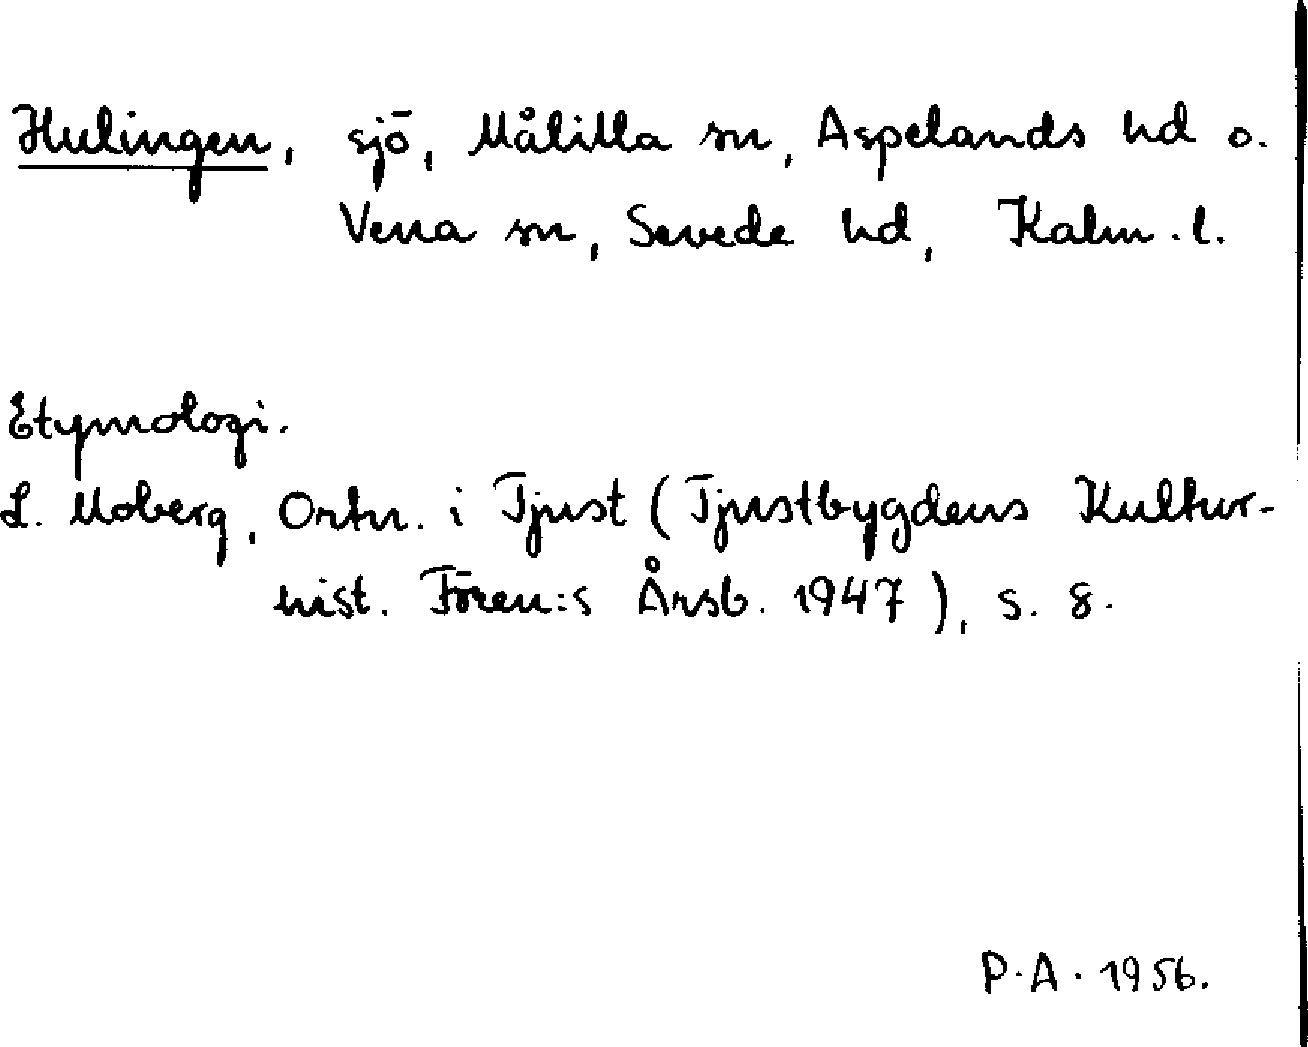 Hulingen, sjö, Målilla sn, Aspelands hd o.
Vena sn, Sevede hd, Kalm. l.
Etymologi.
L. Moberg, Ortn. i Tjust (Tjustbygdens Kultur-
hist. Fören:s Årsb. 1947), s. 8.
P.A. 1956.